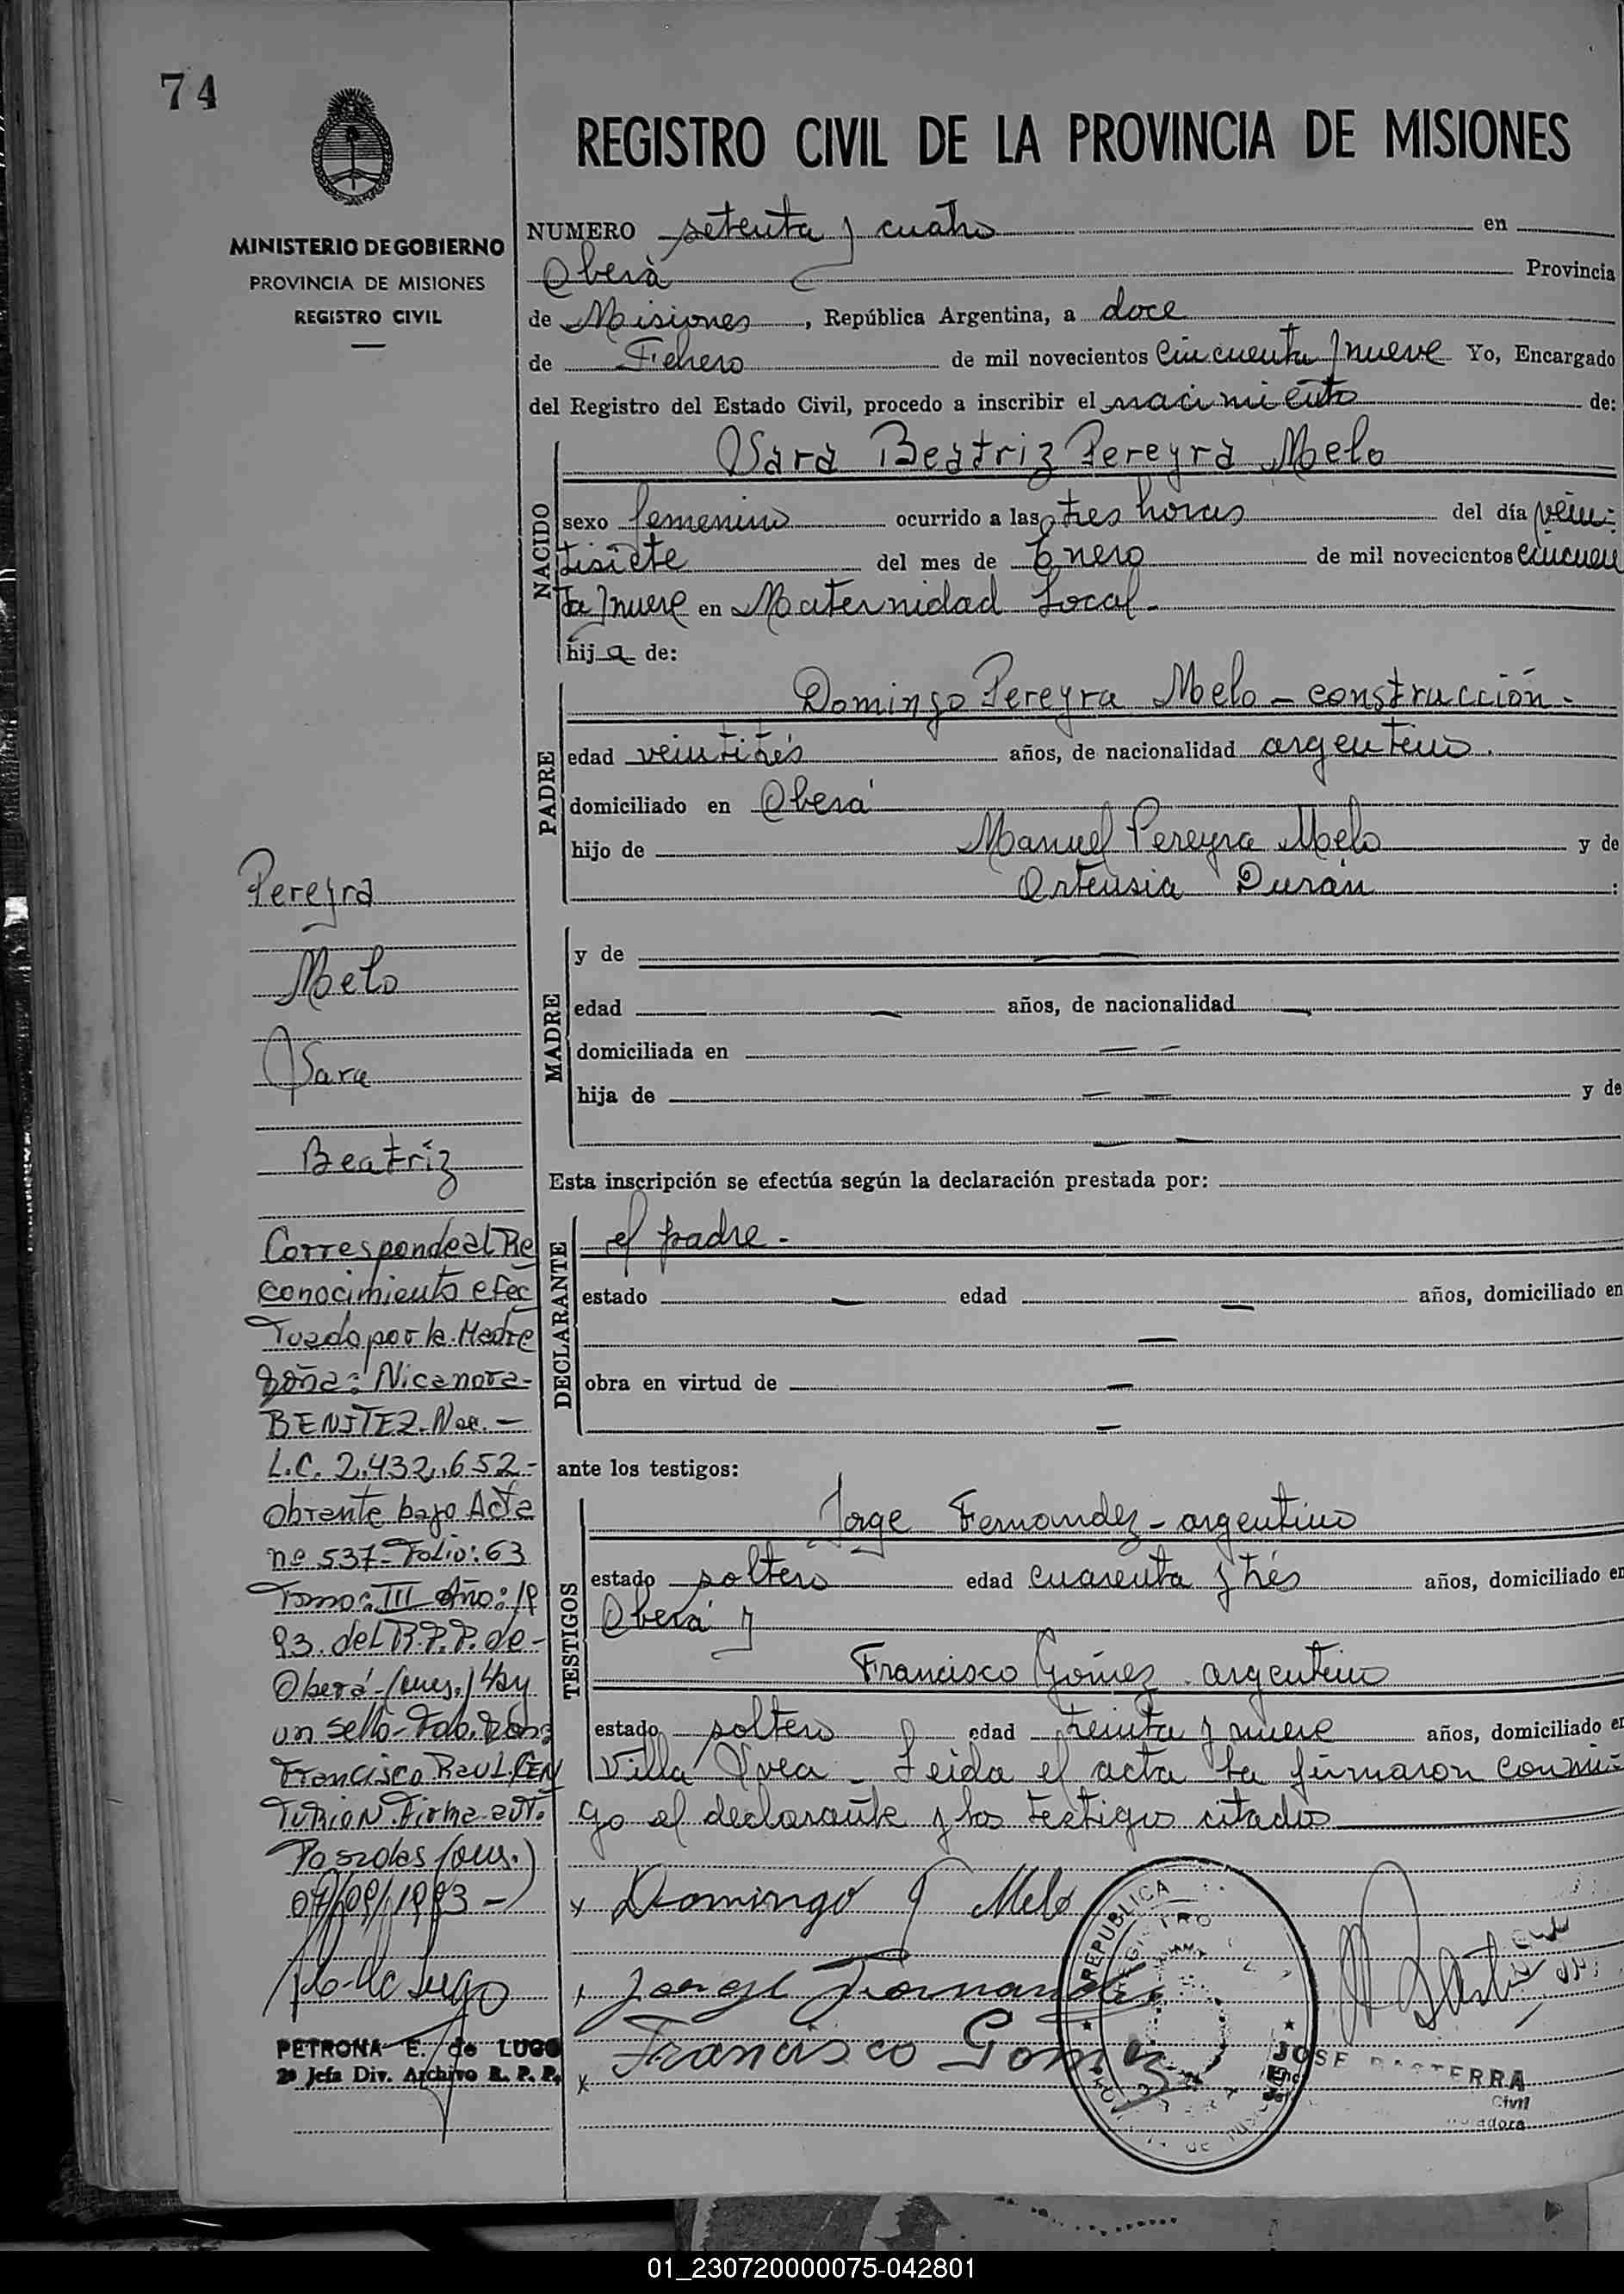 74
MINISTERIO DE GOBIERNO
PROVINCIA DE MISIONES
REGISTRO CIVIL
REGISTRO CIVIL DE LA PROVINCIA DE MISIONES
NUMERO setenta y cuatro en
Oberà Provincia
de Misiones, República Argentina, a doce
de Febrero de mil novecientos cincuenta y nueve Yo, Encargado
del Registro del Estado Civil, procedo a inscribir el nacimiento de:
NACIDO
Sara Beatriz Pereyra Melo
sexo femenino ocurrido a las tres horas del día vein-
tisiete del mes de Enero de mil novecientos cincuen
ta y nueve en Maternidad Local-
hija de:
PADRE
Domingo Pereyra Melo - construcción -
edad veintitrés años, de nacionalidad argentino.
domiciliado en Oberá
hijo de Manuel Pereyra Melo y de
Ortensia Durán :
MADRE
y de —
edad — años, de nacionalidad —
domiciliada en — —
hija de — — y de
— —
Esta inscripción se efectúa según la declaración prestada por:
DECLARANTE
el padre -
estado — edad — años, domiciliado en
—
obra en virtud de —
—
ante los testigos:
TESTIGOS
Jorge Fernandez - argentino
estado soltero edad cuarenta y trés años, domiciliado en
Oberá y
Francisco Gómez argentino
estado soltero edad treinta y nueve años, domiciliado en
Villa Leida el acta la firmaron conmi-
go el declarante y los testigos citados
x Domingo P Melo
x Jorge Fernandez
x Francisco Gomez
REPUBLICA
JOSE BASTERRA
Civil
Pereyra
Melo
Sara
Beatriz
Corresponde al Re
conocimiento efec
tuado por la Madre
doña: Nicanora-
BENITEZ. Nac. -
L.C. 2.432.652-
Obrante bajo Acta
nº 537- Folio: 63
Tomo: III Año: 19
93. del R.P.P. de -
Oberá - (mns.) Hay
un sello-
Francisco Raul CEN
TURION. Firma aut.
Posadas (mns.)
07/09/1993 -
PETRONA E. de LUGO
2ª Jefa Div. Archivo R. P. P.
01_230720000075-042801